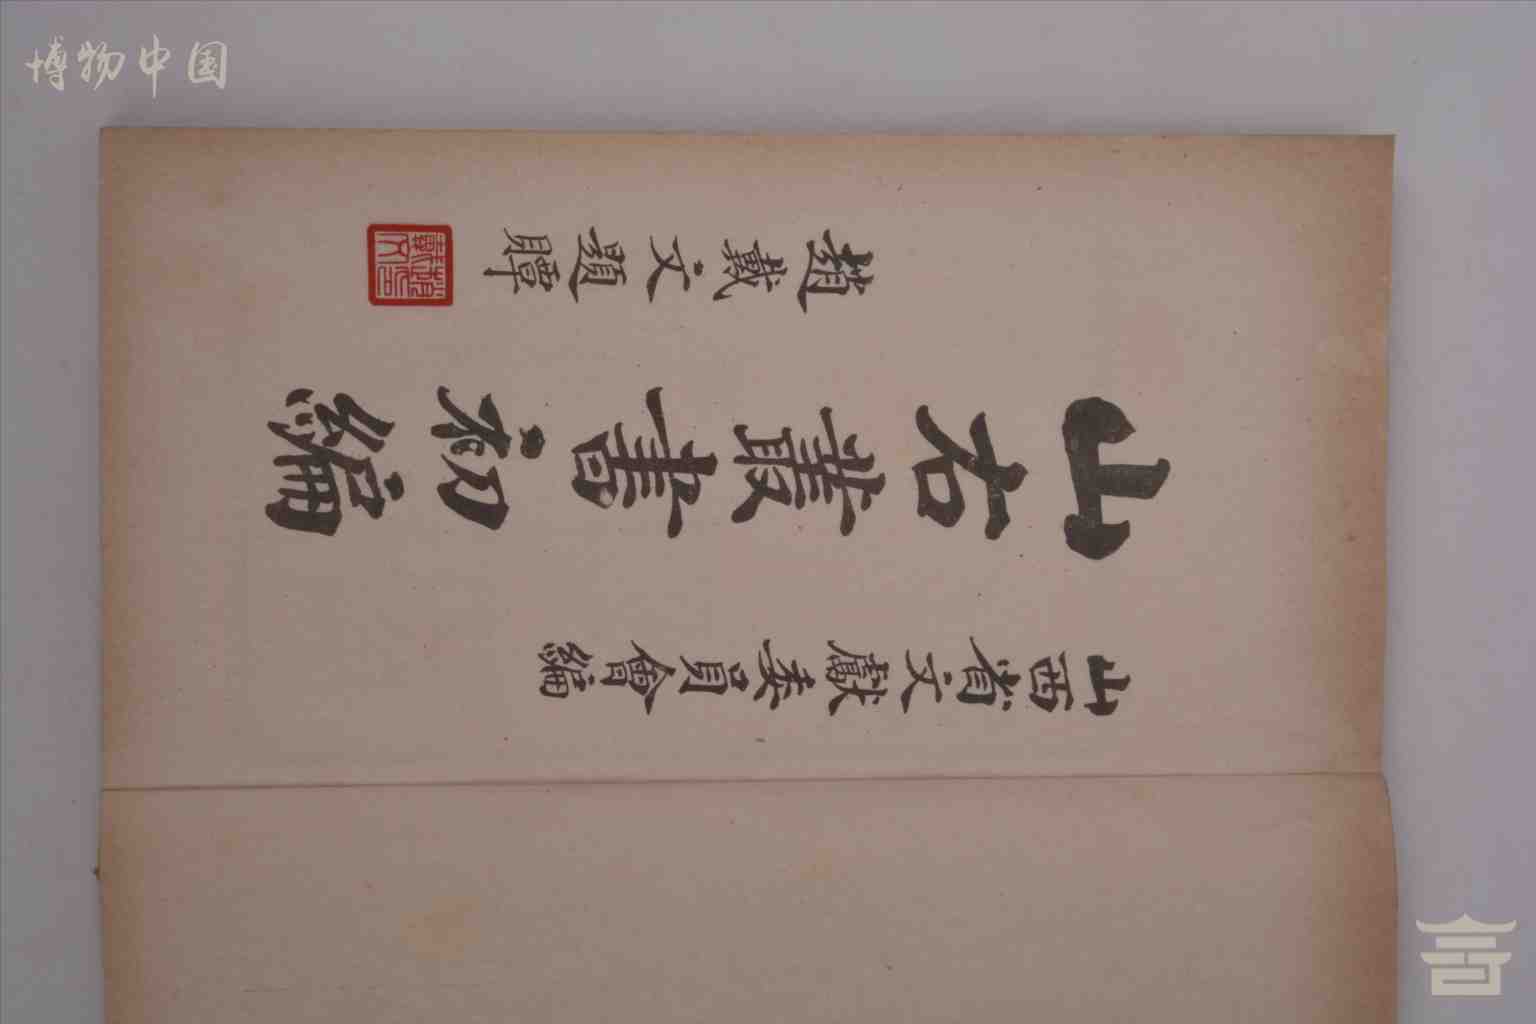 博物中国
山西省文獻委員會編
山右叢書初編
趙戴文題贉